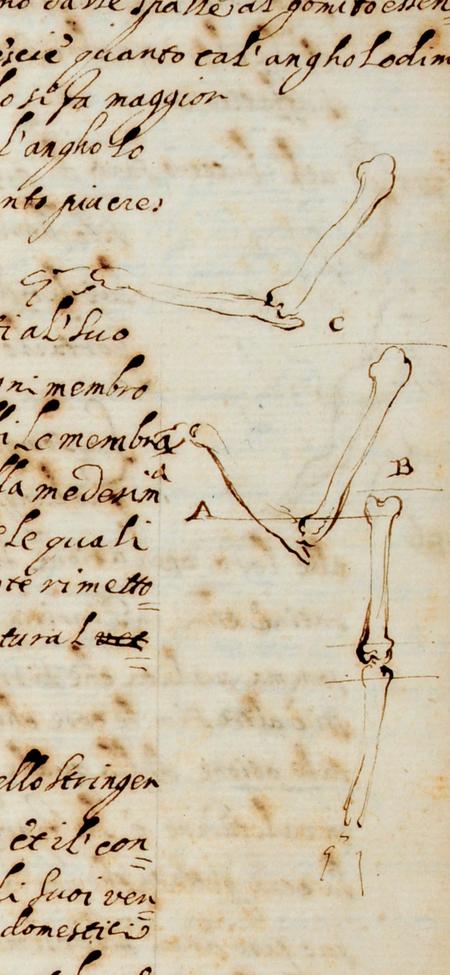 no dalle spalle al gomito essen
escie quanto tal' angholo dim
lo si fa maggior
l'angholo
nto piacere:
C
i al' suo
ni membro
B
li le membra
lla medesim
a
A
ele quali
te rimetto
tural
ello stringer
et il' con
li suoi ven
domestici